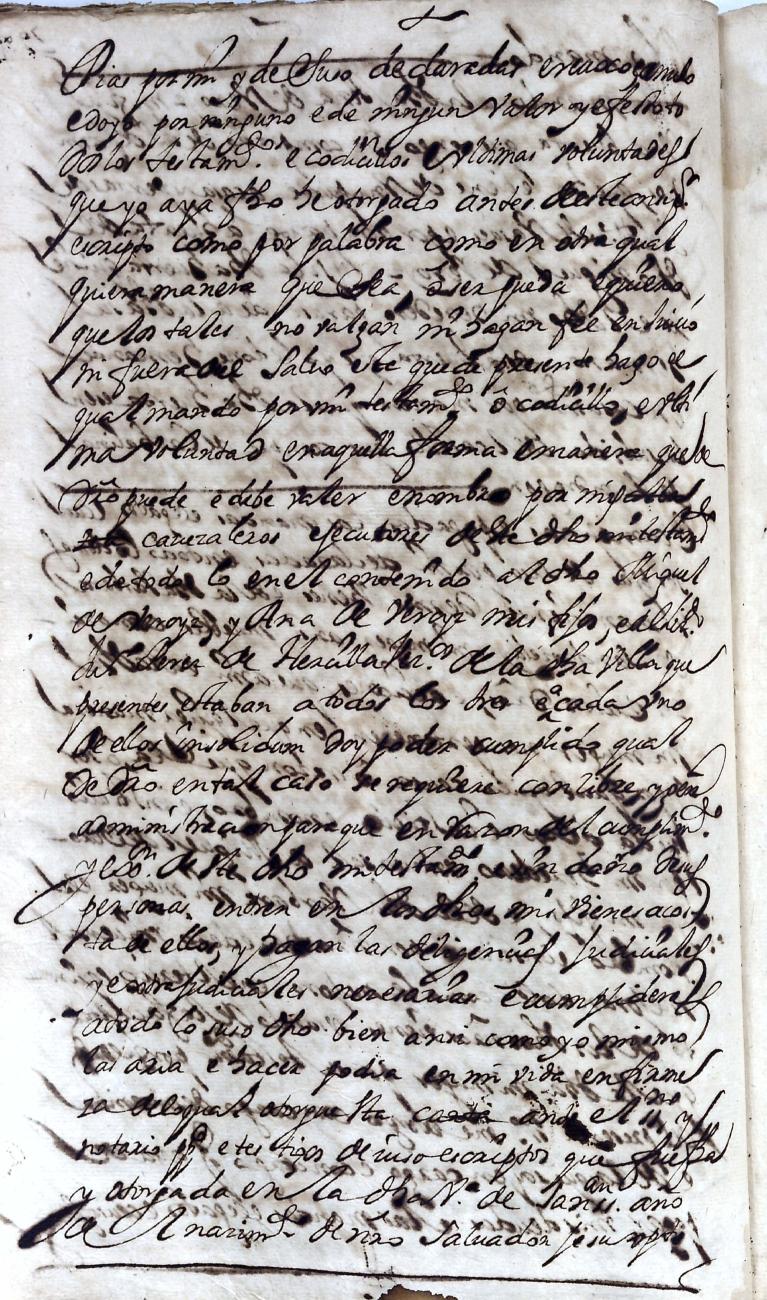 Dias por mi y de suso declaradas e revoco anulo
e doy por ninguno e de ningun valor y efecto to
dos los testam.os e codicillos e ultimas voluntades
que yo aya fho he otorgado antes deste
escripto como por palabra como en otra qual
quiera manera que sea, o ser pueda e quiero
que los tales no valgan ni hagan fee en Juicio
ni fuera del Salvo este que de presente hago el
qual mando por mi testam.to o codicillo, e ulti
ma voluntad en aquella forma e manera que de
dro puede e debe valer e nombro por mis
cavezaleros esecutores deste dho mi testam.to
e de todo lo en el contenido al dho Miguel
de y Ana de mis hijos, e al
Perez de de la dha Villa que
presentes estaban a todos los tres e a cada uno
de ellos insolidum doy poder cumplido qual
de dro en tal caso se requiere con libre y gen.l
administracion para que en razon del cumplim.to
y de este dho mi testam.to e sin daño de sus
personas, entren en los dhos mis vienes a cos
ta de ellos, y hagan las diligencias Judiciales
y extrajudiciales necesarias e cumplideras
a todo lo suso dho bien ansi como yo mismo
las aria e hacer podria en mi vida en firme
za de lo qual otorgue esta carta ante el y
notario pp.co e testigos de iuso escriptos que fue fha
y otorgada en la dha V.a de año
de Nacim.to de nro Salvador Jesu xpto